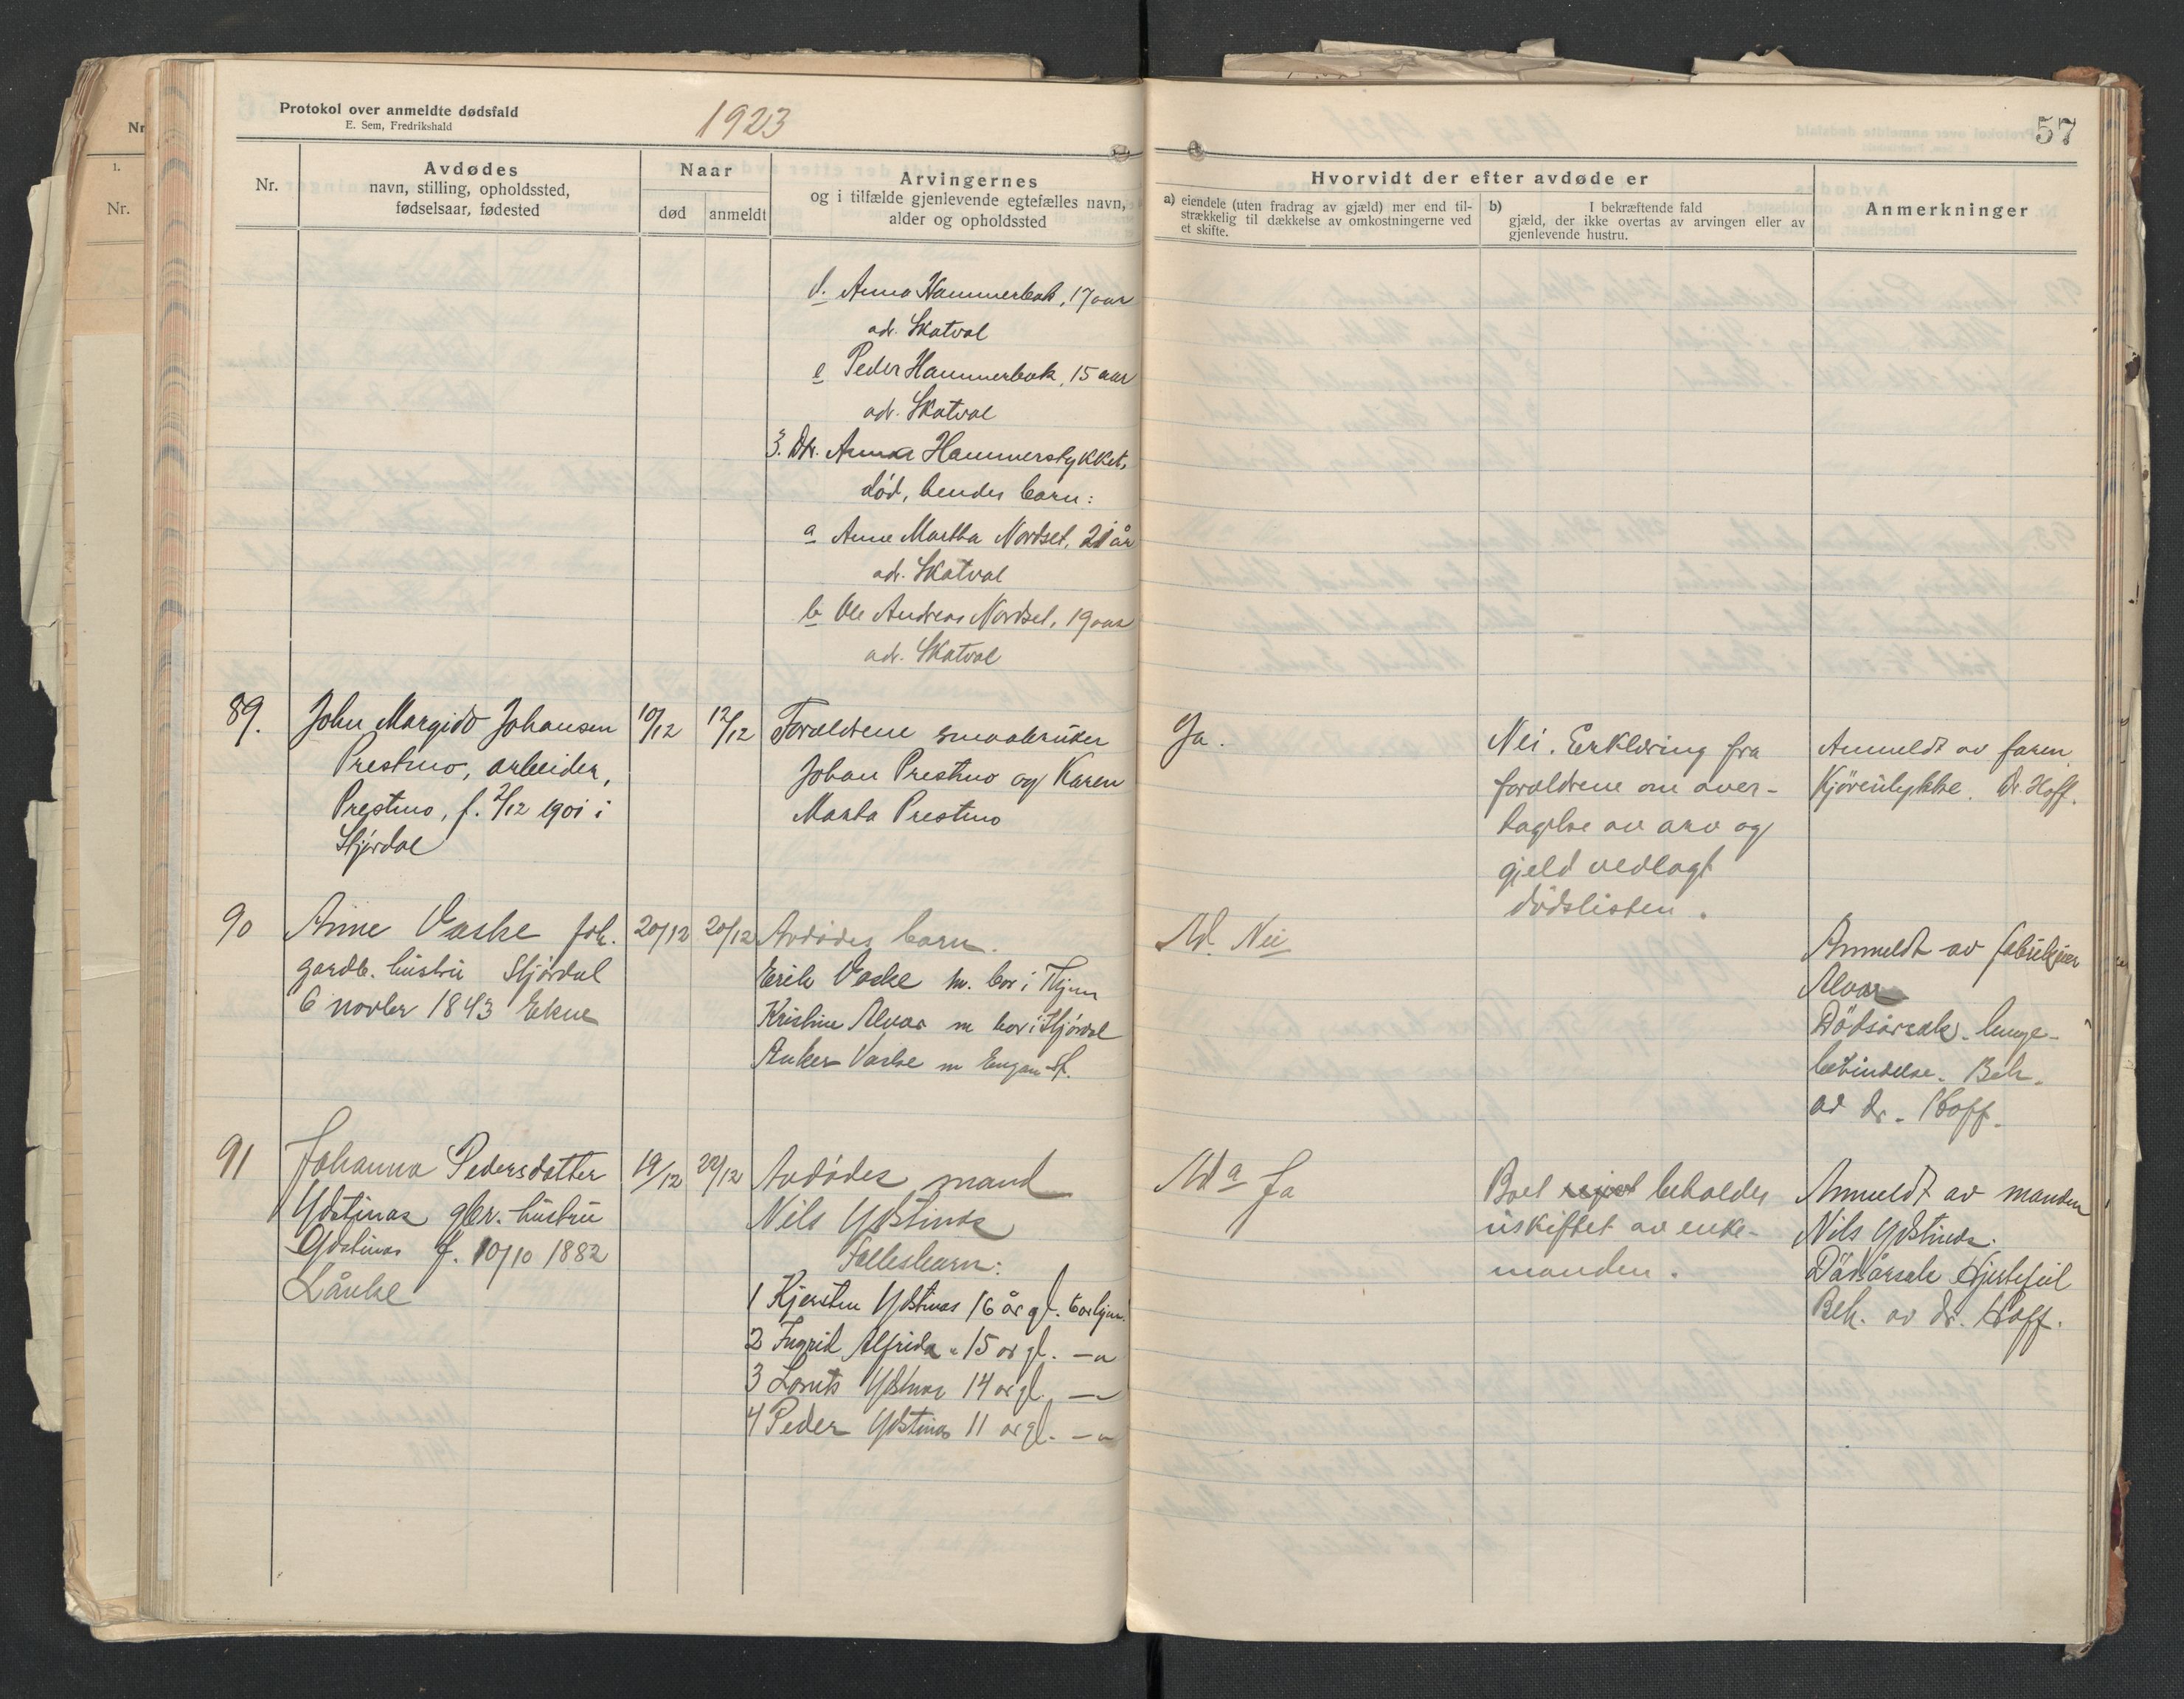 Protokol over anmeldte dødsfald
E. Sem, Fredrikshald
1923
Nr.
Avdødes
navn, stilling, opholdssted,
fødselsaar, fødested
Naar
død
anmeldt
Arvingernes
og i tilfælde gjenlevende egtefælles navn,
alder og opholdssted
d. Anna Hammerbak, 17 aar
adr. Skatval
e Peder Hammerbak, 15 aar
adr. Skatval
3. Dtr. Anna Hammerstykket,
død, hendes barn:
a Anne Martha Nordset, 21 år
adr. Skatval
b Ole Andreas Nordset, 19 aar
adr. Skatval
89.
John Margido Johansen
Prestmo, arbeider,
Prestmo, f. 2/12 1901 i
Stjørdal
10/12
12/12
Foraldrene smaabruker
Johan Prestmo og Karen
Marta Prestmo
90
Anne Vaske fhv.
gardb. hustru Stjørdal
6 novbr 1843 Ekne
20/12
20/12
Avdødes barn.
Erik Vaske m. bor i
Kristine Alvar m bor i Stjørdal
Anker Vaske m Engan St.
91
Johanna Pedersdatter
Ydstinas gbr. hustru
Ydstinas f. 10/10 1882
Lånke
19/12
22/12
Avdødes mand
Nils Ydstinas
Fellesbarn:
1 Kjersten Ydstinas 16 år gl.
2 Ingrid Alfrida " 15 år gl. — "
3 Lorits Ydstinas 14 år gl. — "
4 Peder Ydstinas 11 år gl. — "
57
Hvorvidt der efter avdøde er
a) eiendele (uten fradrag av gjæld) mer end til-
strækkelig til dækkelse av omkostningerne ved
et skifte.
b) I bekræftende fald
gjæld, der ikke overtas av arvingen eller av
gjenlevende hustru.
Anmerkninger
Ja.
Nei. Erklæring fra
foraldrene om over-
tagelse av arv og
gjeld vedlagt
dødslisten.
Anmeldt av faren
Kjøreulykke. Dr. Hoff.
Ad. Nei
Anmeldt av fabrikeier
Alvar
Dødsårsak. lunge-
betindelse. Beh.
av dr. Hoff.
Ad a Ja
Boet beholdes
uskiftet av enke-
manden.
Anmeldt av manden
Nils Ydstinas.
Dødsårsak Hjertefeil
Beh. av dr. Hoff.
Nr
1.
Nr.